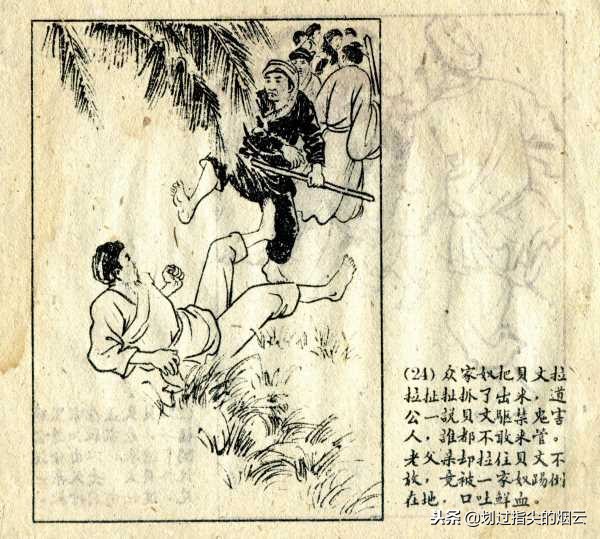 (24) 众家奴把贝文拉
拉扯扯抓了出来，道
公一說贝文驱禁鬼害
人，誰都不敢来管。
老父亲却拉住贝文不
放，竟被一家奴踢倒
在地，口吐鲜血。
头条@划过指尖的烟云